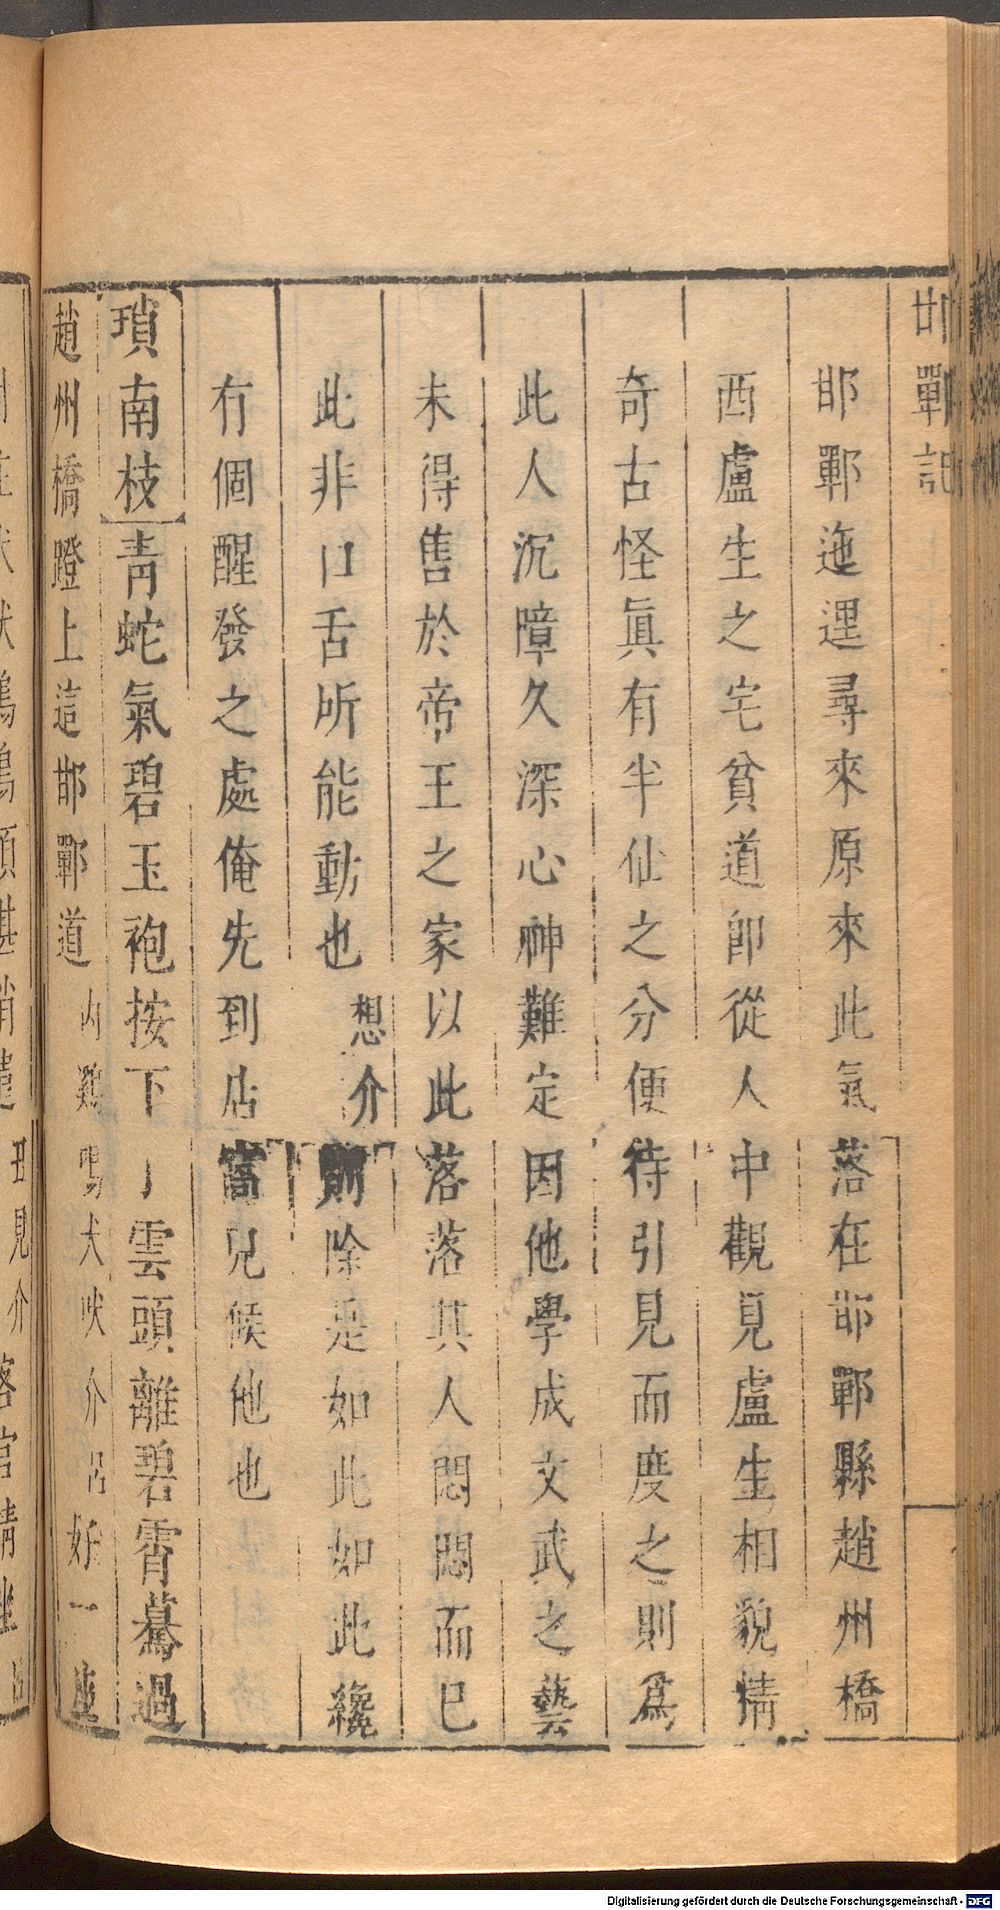 邯鄲記
邯鄲迤逞尋來原來此氣落在邯鄲縣趙州橋
西盧生之宅貧道卽從人中觀見盧生相貌精
奇古怪眞有半仙之分便待引見而度之則爲
此人沉障久深心神難定因他學成文武之藝
未得售於帝王之家以此落落其人悶悶而已
此非口舌所能動也想介則除是如此如此纔
有個醒發之處俺先到店窩兒候他也
瑣南枝青蛇氣碧玉袍按下了雲頭離碧霄驀過
趙州橋蹬上這邯鄲道內鷄鳴犬吠介呂好一座
丑見介
Digitalisierung gefördert durch die Deutsche Forschungsgemeinschaft - DFG